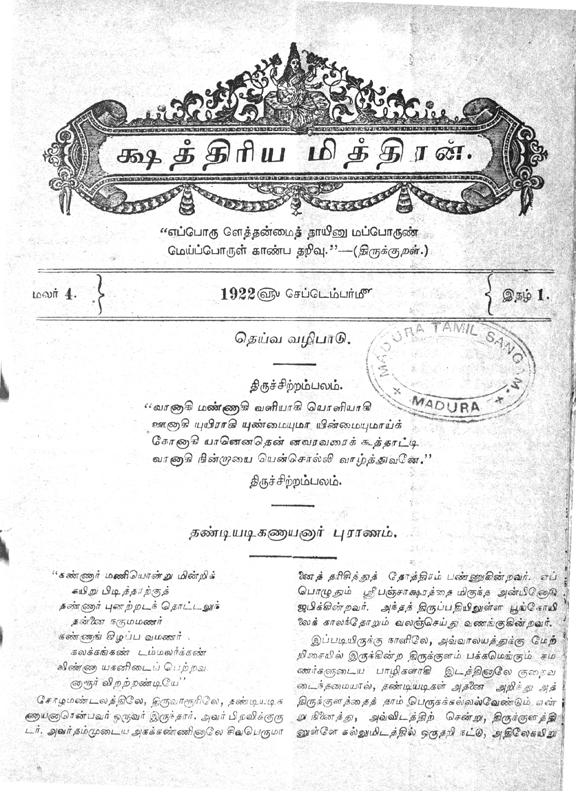 க்ஷத்திரிய மித்திரன்.
“எப்போரு ளெத்தன்மைத் தாயினு மப்பொருண்
மெய்ப்பொருள் காண்ப தறிவு.”—(திருக்குறள்.)
மலர் 4.
1922௵ செப்டெம்பர்௴
இதழ் 1.
தெய்வ வழிபாடு.
MADURA TAMIL SANGAM.
MADURA
திருச்சிற்றம்பலம்.
“வானாகி மண்ணாகி வளியாகி யொளியாகி
ஊனாகி யுயிராகி யுண்மையுமா யின்மையுமாய்க்
கோனாகி யானெனதென் னவரவரைக் கூத்தாட்டி
வானாகி நின்றாயை யென்சொல்லி வாழ்த்துவனே.”
திருச்சிற்றம்பலம்.
தண்டியடிகணாயனார் புராணம்.
“கண்ணார் மணியொன்று மின்றிக்
கயிறு பிடித்தரற்குத்
தண்ணார் புனற்றடந் தொட்டலுந்
தன்னை நகுமமணர்
கண்ணங் கிழப்ப வமணர்
கலக்கங்கண் டம்மலர்க்கண்
விண்ணா யகனிடைப் பெற்றவ
னாரூர் விறற்றண்டியே”
சோழமண்டலத்திலே, திருவாரூரிலே, தண்டியடிக
ணாயனாரென்பவர் ஒருவர் இருந்தார். அவர் பிறவிக்குரு
டர். அவர் தம்முடைய அகக்கண்ணினாலே சிவபெருமா
னைத் தரிசித்துத் தோத்திரம் பண்ணுகின்றவர். எப்
பொழுதும் ஸ்ரீபஞ்சாக்ஷரத்தை மிகுந்த அன்பினோடு
ஜபிக்கின்றவர். அந்தத் திருப்பதியிலுள்ள பூங்கோயி
லைக் காலந்தோறும் வலஞ்செய்து வணங்குகின்றவர்.
இப்படியிருக்கு நாளிலே, அவ்வாலயத்துக்கு மேற்
றிசையில் இருக்கின்ற திருக்குளம் பக்கமெங்கும் சம
ணர்களுடைய பாழிகளாகி இடத்தினாலே குறைவ
டைந்தமையால், தண்டியடிகள் அதனை அறிந்து அத்
திருக்குளத்தைத் நாம் பெருகக்கல்லல்வேண்டும். என்
று நினைத்து, அவ்விடத்திற் சென்று, திருக்குளத்தி
னுள்ளே கல்லுமிடத்தில் ஒருதறி நட்டு, அதிலேகயிறு